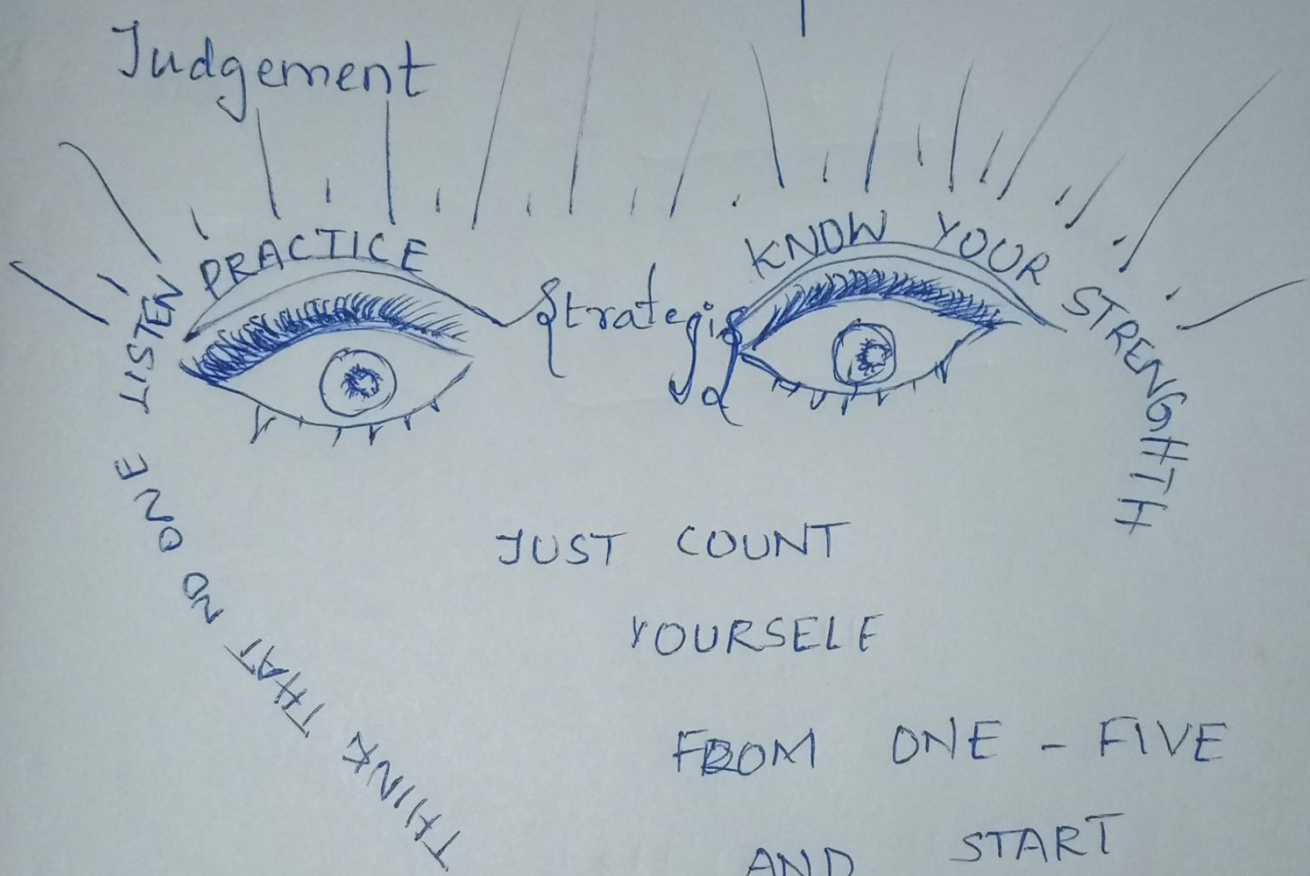 Judgement
PRACTICE
KNOW YOUR STRENGHTH
Strategis
THINK THAT NO ONE LISTEN
JUST COUNT
YOURSELF
FROM ONE - FIVE
AND START